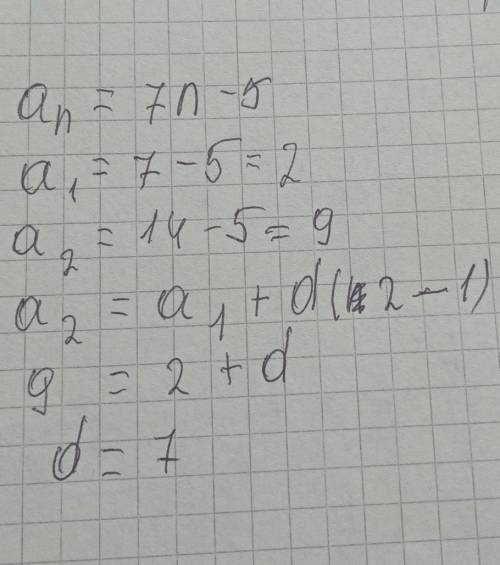 aₙ = 7n - 5
a₁ = 7 - 5 = 2
a₂ = 14 - 5 = 9
a₂ = a₁ + d(2 - 1)
9 = 2 + d
d = 7